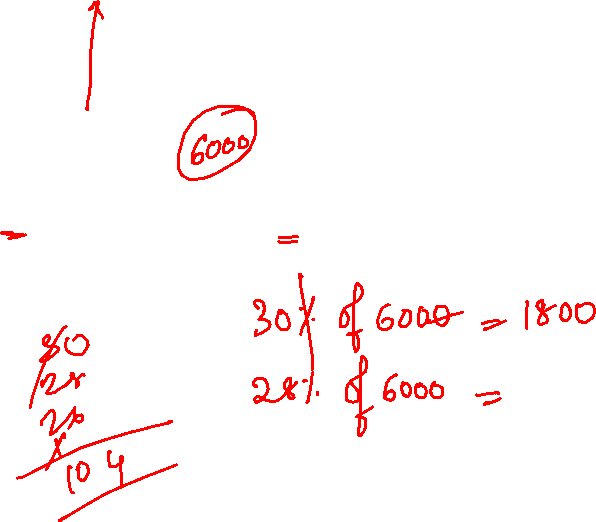 6000
- =
30% of 6000 = 1800
28% of 6000 =
104